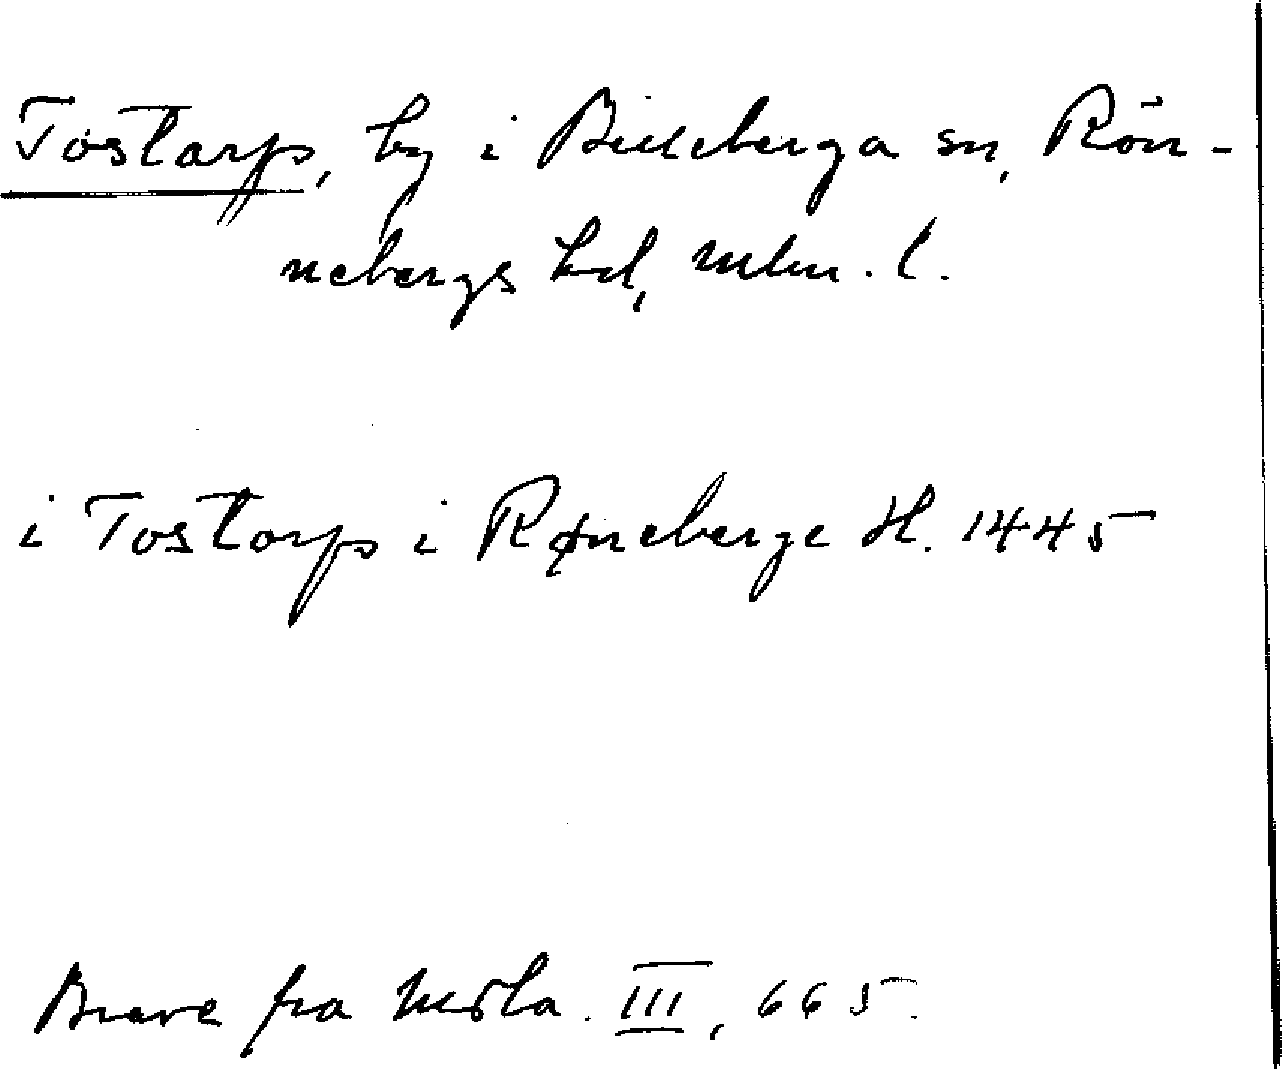 Tostarp, by i Billeberga sn, Rön-
nebergs hd, Mlm. l.
i Tostorp i Røneberge H. 1445
Breve fra
III, 665.